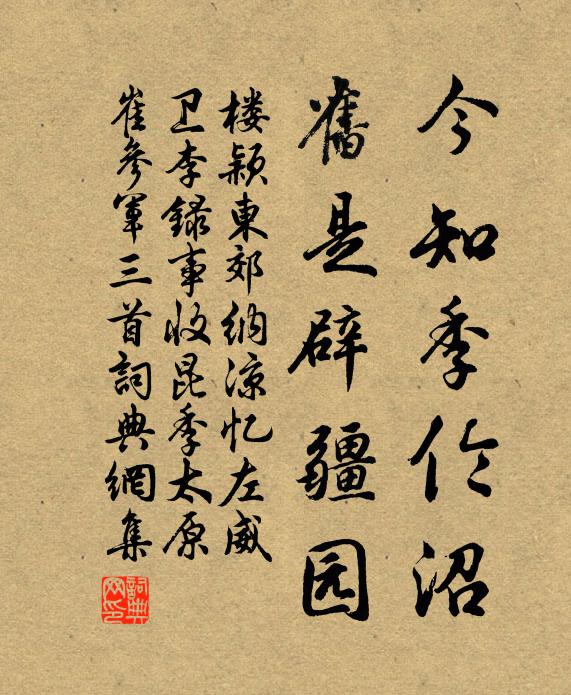 今知季伦沼
舊是辟疆园
楼颖東郊纳凉忆左威
卫李録事收昆季太原
崔參軍三首詞典網集
詞典网印